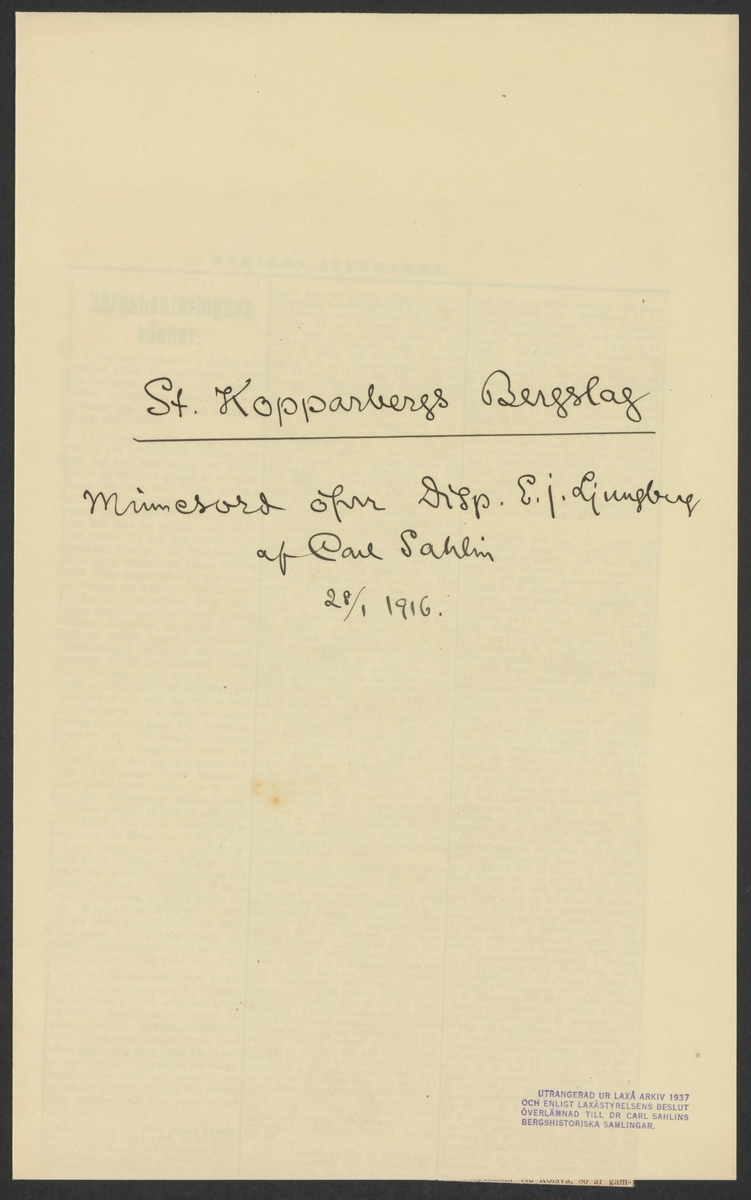 St. Kopparbergs Bergslag
Minnesord öfver Disp. E. j. Ljungberg
af Carl Sahlin
28/1 1916.
UTRANGERAD UR LAXÅ ARKIV 1937
OCH ENLIGT LAXÅSTYRELSENS BESLUT
ÖVERLÄMNAD TILL DR CARL SAHLINS
BERGSHISTORISKA SAMLINGAR.
Kolsva, 80 år gam-